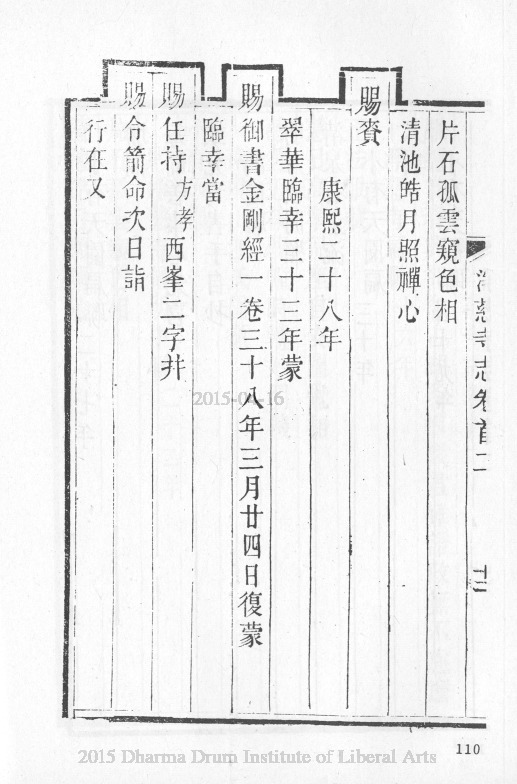 淨慈寺志卷首二
十二
片石孤雲窺色相
清池皓月照禪心
賜賚
康熙二十八年
翠華臨幸三十三年蒙
賜御書金剛經一卷三十八年三月廿四日復蒙
臨幸當
賜住持方孝西峯二字幷
賜令箭命次日詣
行在又
110
2015-04-16
2015 Dharma Drum Institute of Liberal Arts